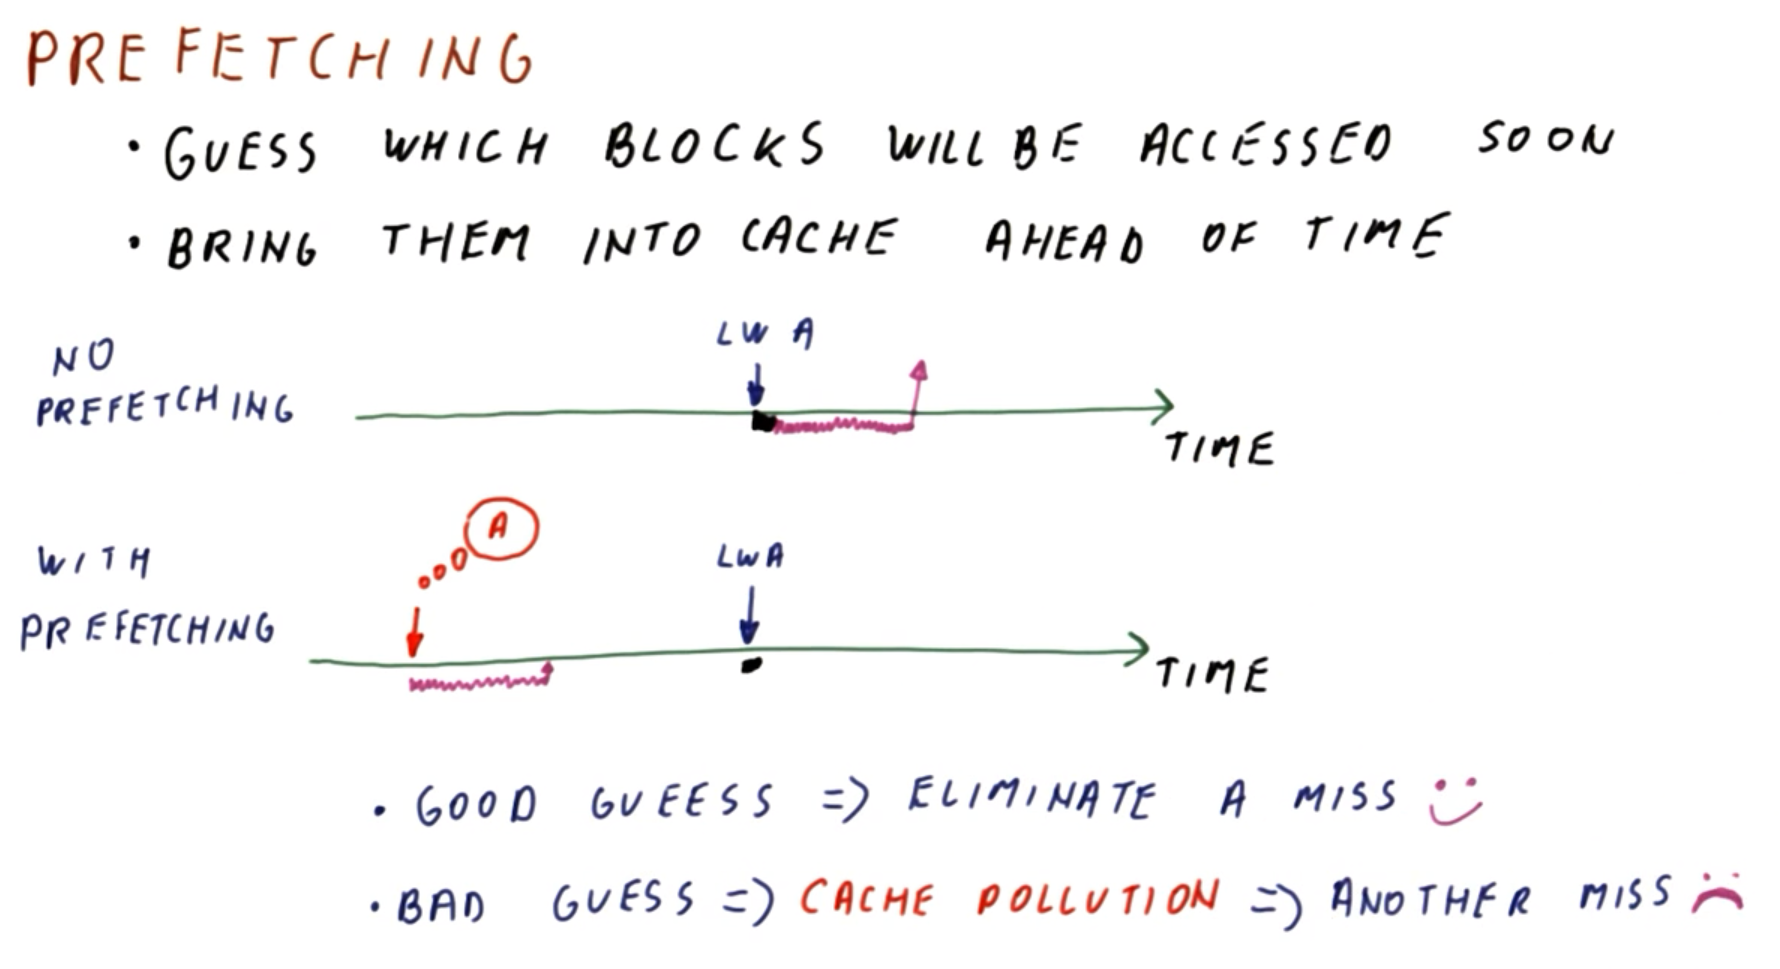 PREFETCHING
• GUESS WHICH BLOCKS WILL BE ACCESSED SOON
• BRING THEM INTO CACHE AHEAD OF TIME
LW A
NO
PREFETCHING
TIME
A
WITH
LWA
PREFETCHING
TIME
• GOOD GUEESS => ELIMINATE A MISS
• BAD GUESS => CACHE POLLUTION => ANOTHER MISS